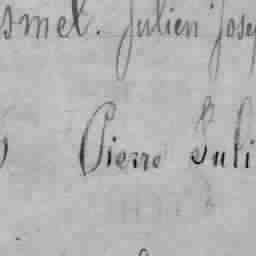 smel. Julien Josep
Pierre Juli